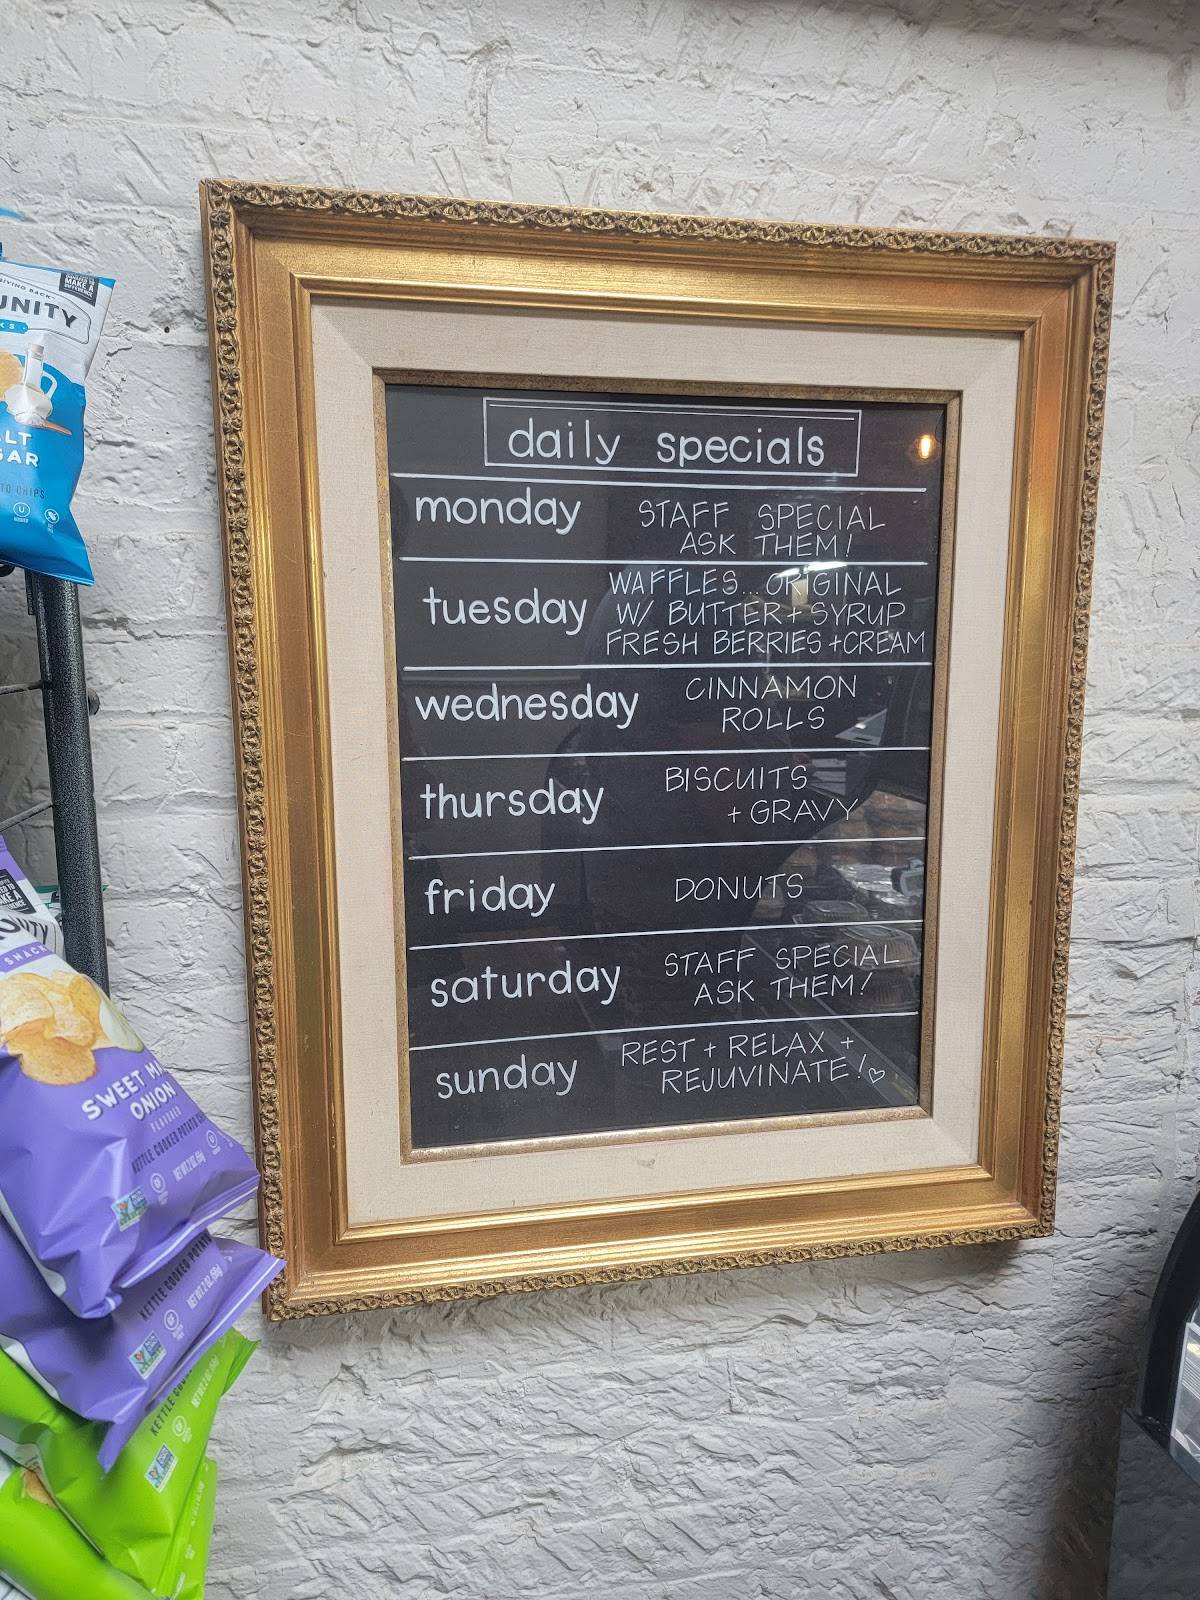 daily specials
monday
STAFF SPECIAL
ASK THEM!
tuesday
WAFFLES... ORIGINAL
W/ BUTTER + SYRUP
FRESH BERRIES + CREAM
wednesday
CINNAMON
ROLLS
thursday
BISCUITS
+ GRAVY
friday
DONUTS
saturday
STAFF SPECIAL
ASK THEM!
sunday
REST + RELAX +
REJUVINATE! ♡
GIVING BACK
MAKE A
DIFFERENCE
UNITY
KS
LT
GAR
TO CHIPS
MAKE A
SNACK
SWEET
ONION
FLAVORED
KETTLE COOKED POTATO
NET WT. 2 OZ. (56g)
KETTLE COOKED POTATO
NET WT. 2 OZ. (56g)
KETTLE
NET WT. 2 OZ. (56g)